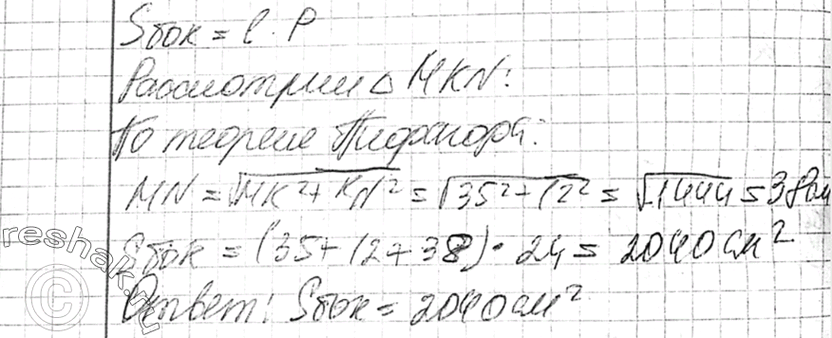 Sбок = l · P
Рассмотрим △ MKN:
По теореме Пифагора:
MN = √MK² + KN² = √35² + 12² = √1444 = 38 см
Sбок = (35 + 12 + 38) · 24 = 2040 см²
Ответ: Sбок = 2040 см²
reshak.ru